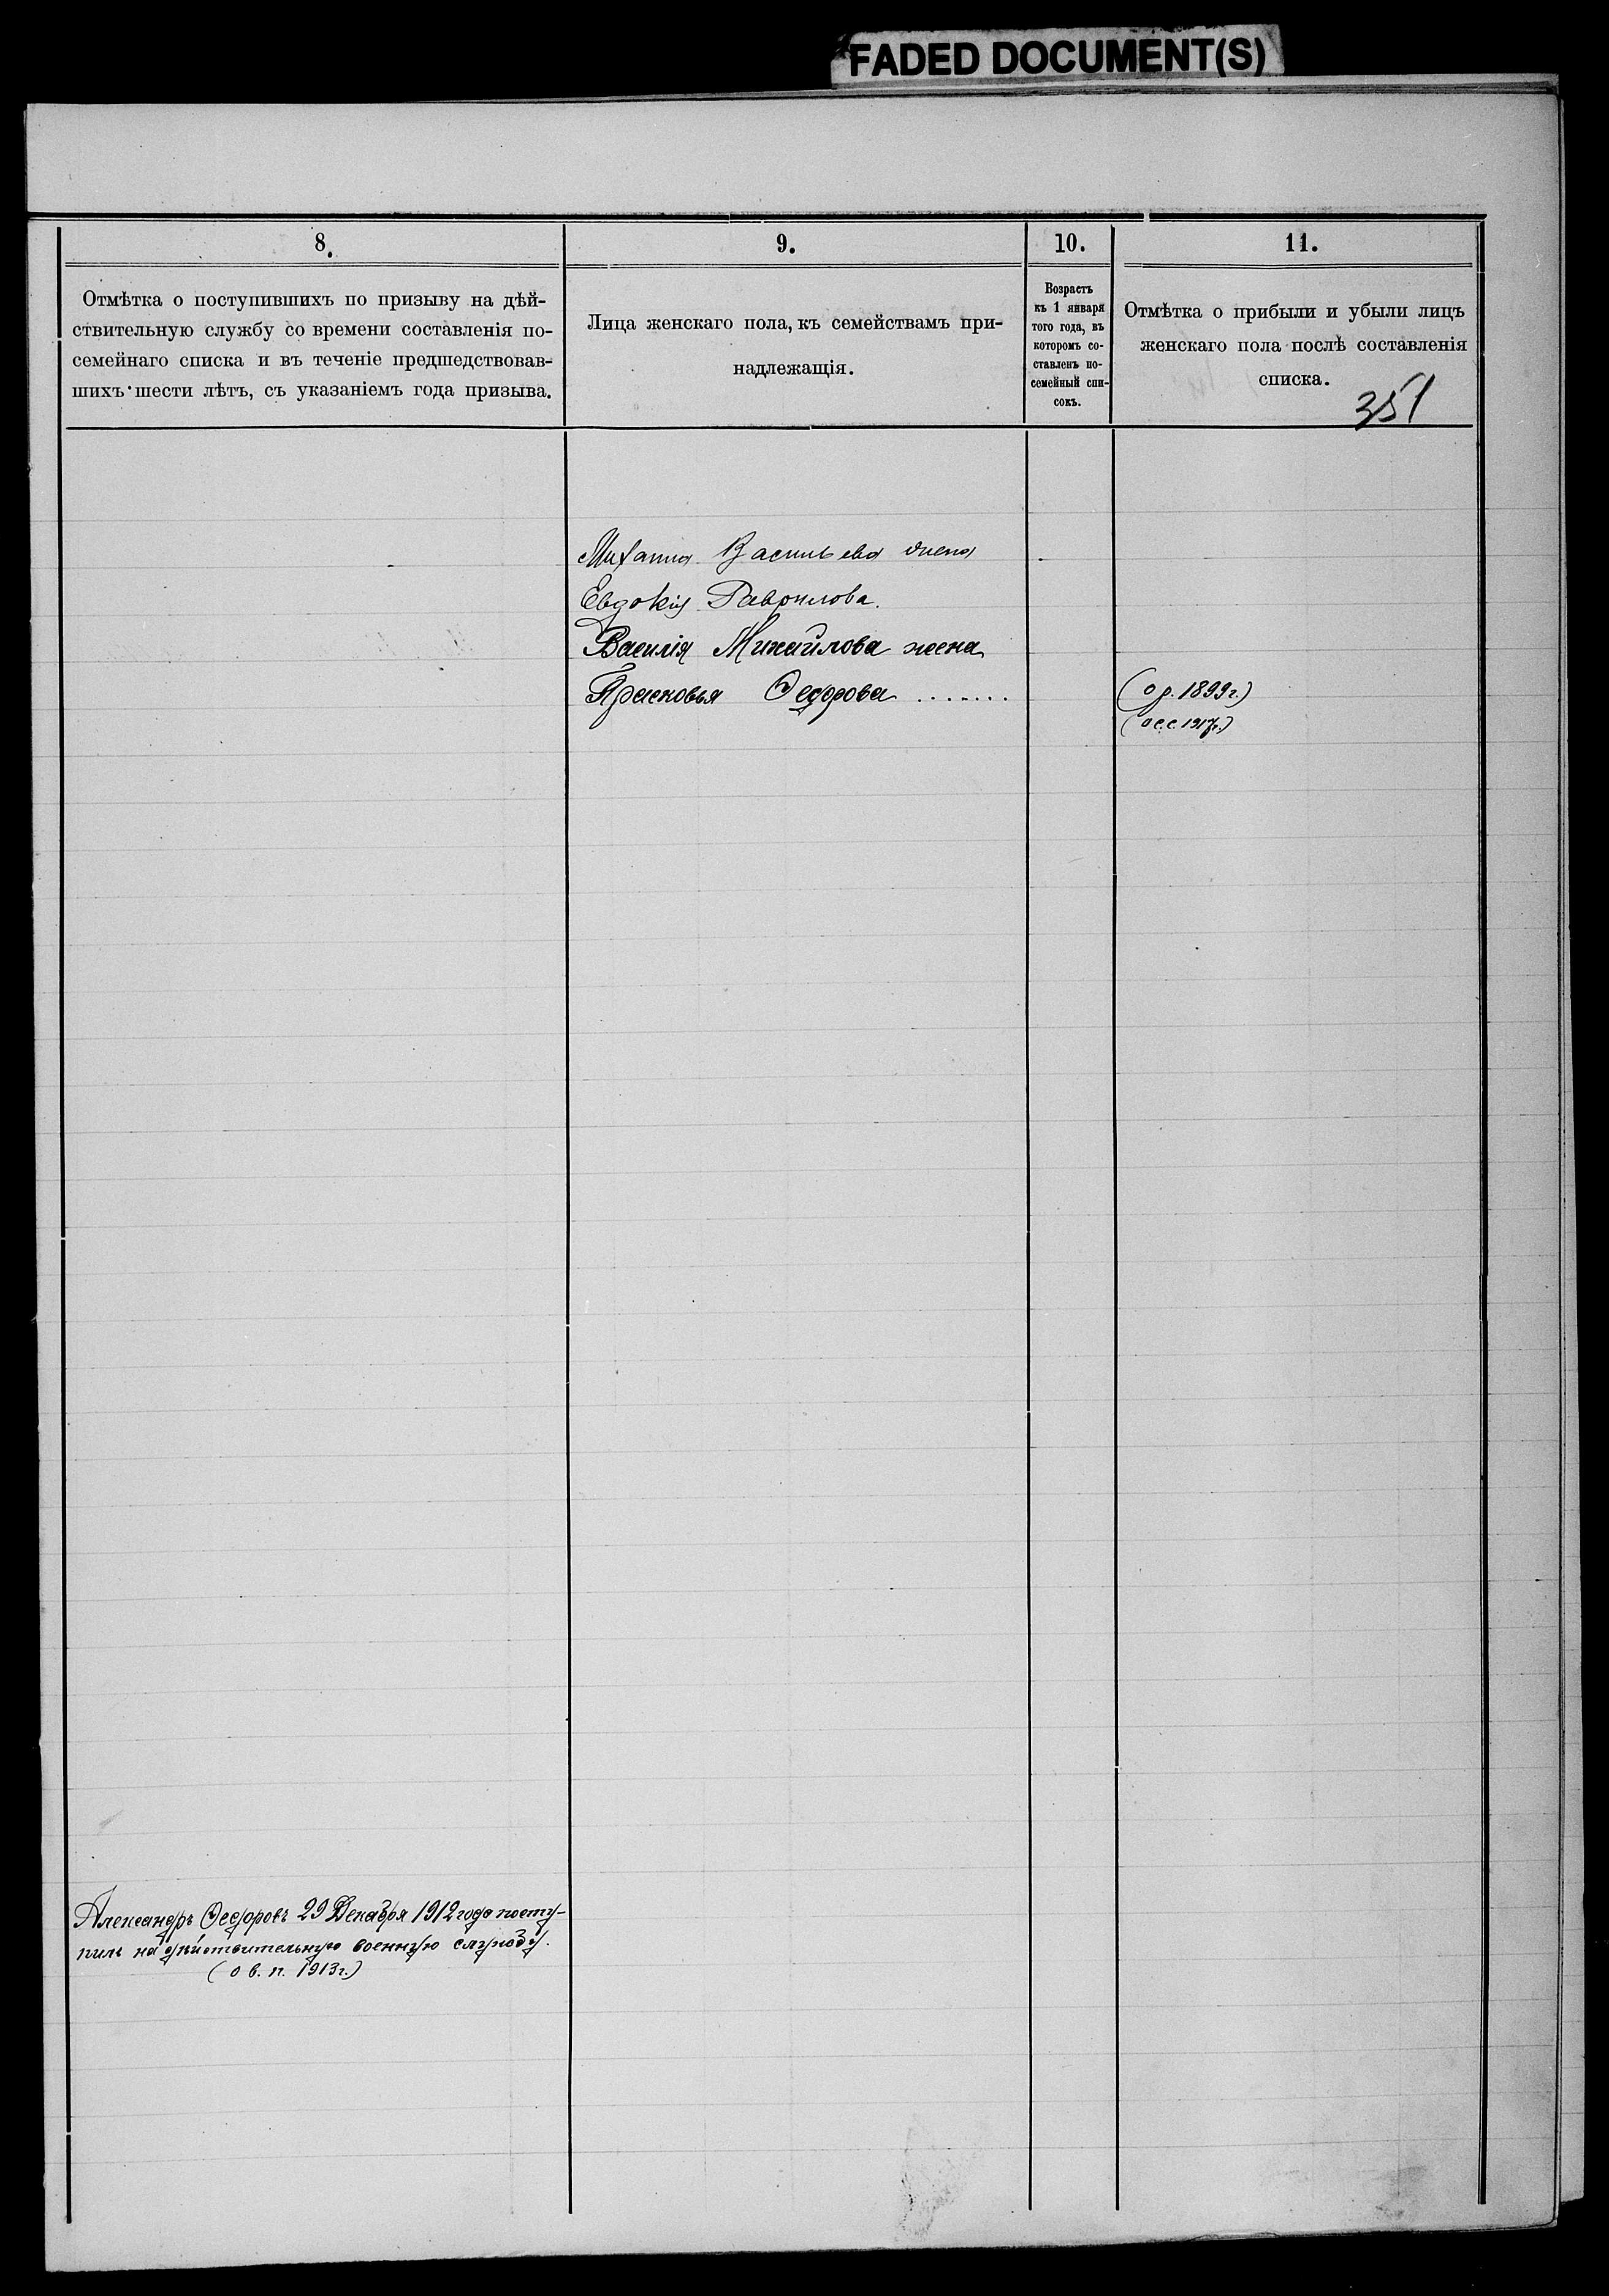 FADED DOCUMENT(S)
8.
9.
10.
11.
Отмѣтка о поступившихъ по призыву на дѣй-
ствительную службу со времени составленія по-
семейнаго списка и въ теченіе предшедствовав-
шихъ шести лѣтъ, съ указаніемъ года призыва.
Лица женскаго пола, къ семействамъ при-
надлежащія.
Возрастъ
къ 1 января
того года, въ
которомъ со-
ставленъ по-
семейный спи-
сокъ.
Отмѣтка о прибыли и убыли лицъ
женскаго пола послѣ составленія
списка.
351
Михаила Васильева жена
Евдокія Гаврилова.
Василія Михайлова жена
Прасковья Ѳедорова .......
(о р. 1899 г.)
(о с.с. 1917 г.)
Александръ Ѳедоровъ 29 Декабря 1912 года посту-
пилъ на дѣйствительную военную службу.
(о в. п. 1913 г.)